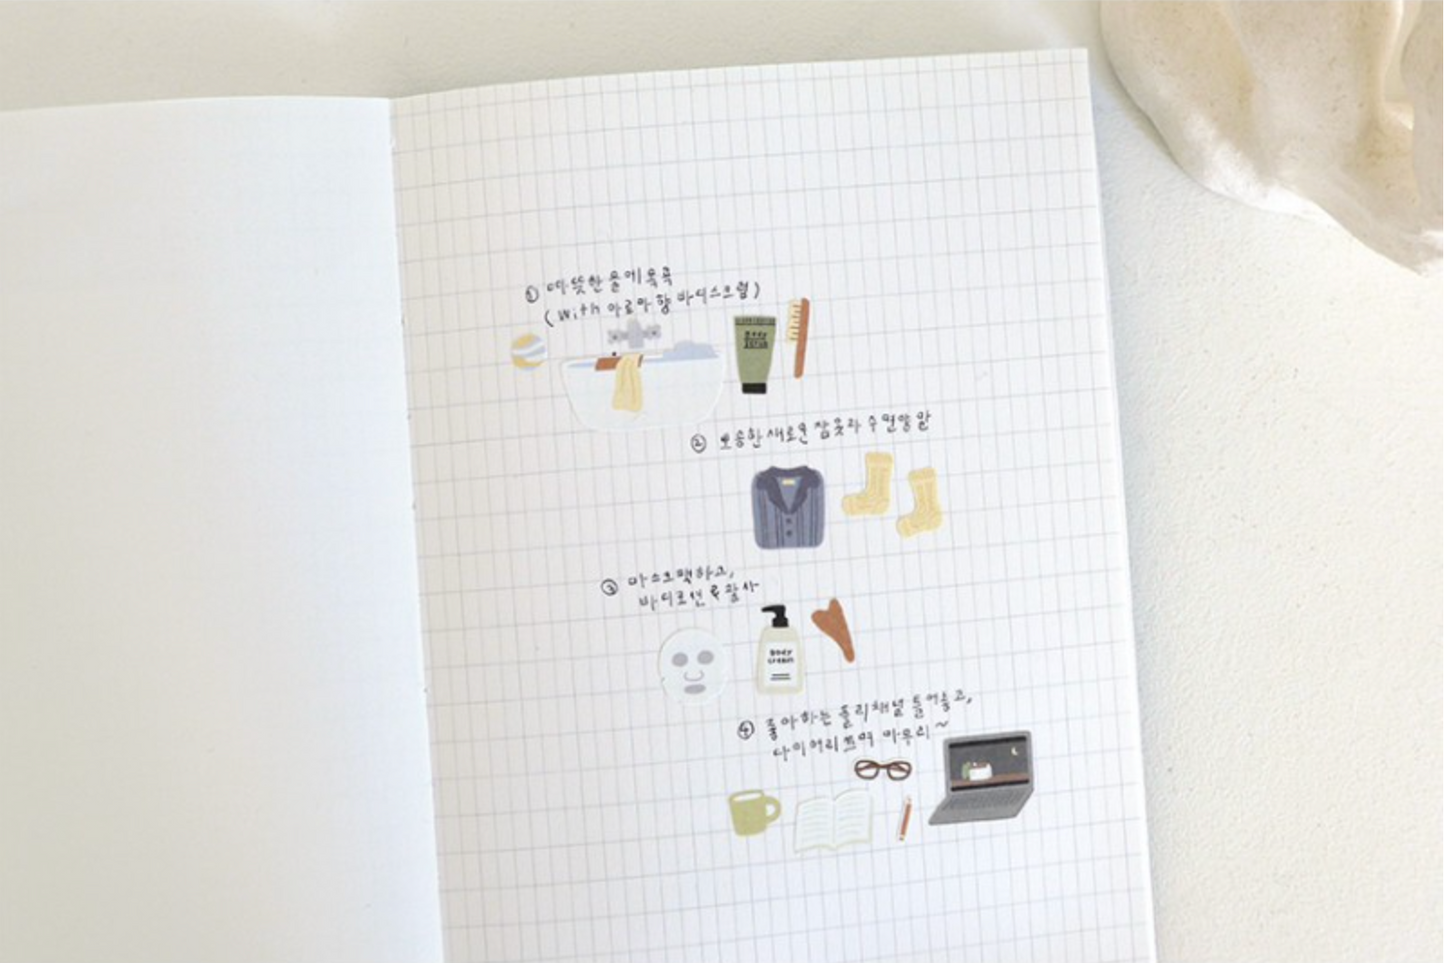 ① 따뜻한 물에 목욕
(with 아로마 향 바디스크럽)
Body
② 뽀송한 새로운 잠옷과 수면양말
③ 마스크팩하고,
바디로션 & 괄사
Body
cream
④ 좋아하는 플리 채널 틀어놓고,
다이어리 쓰며 마무리~